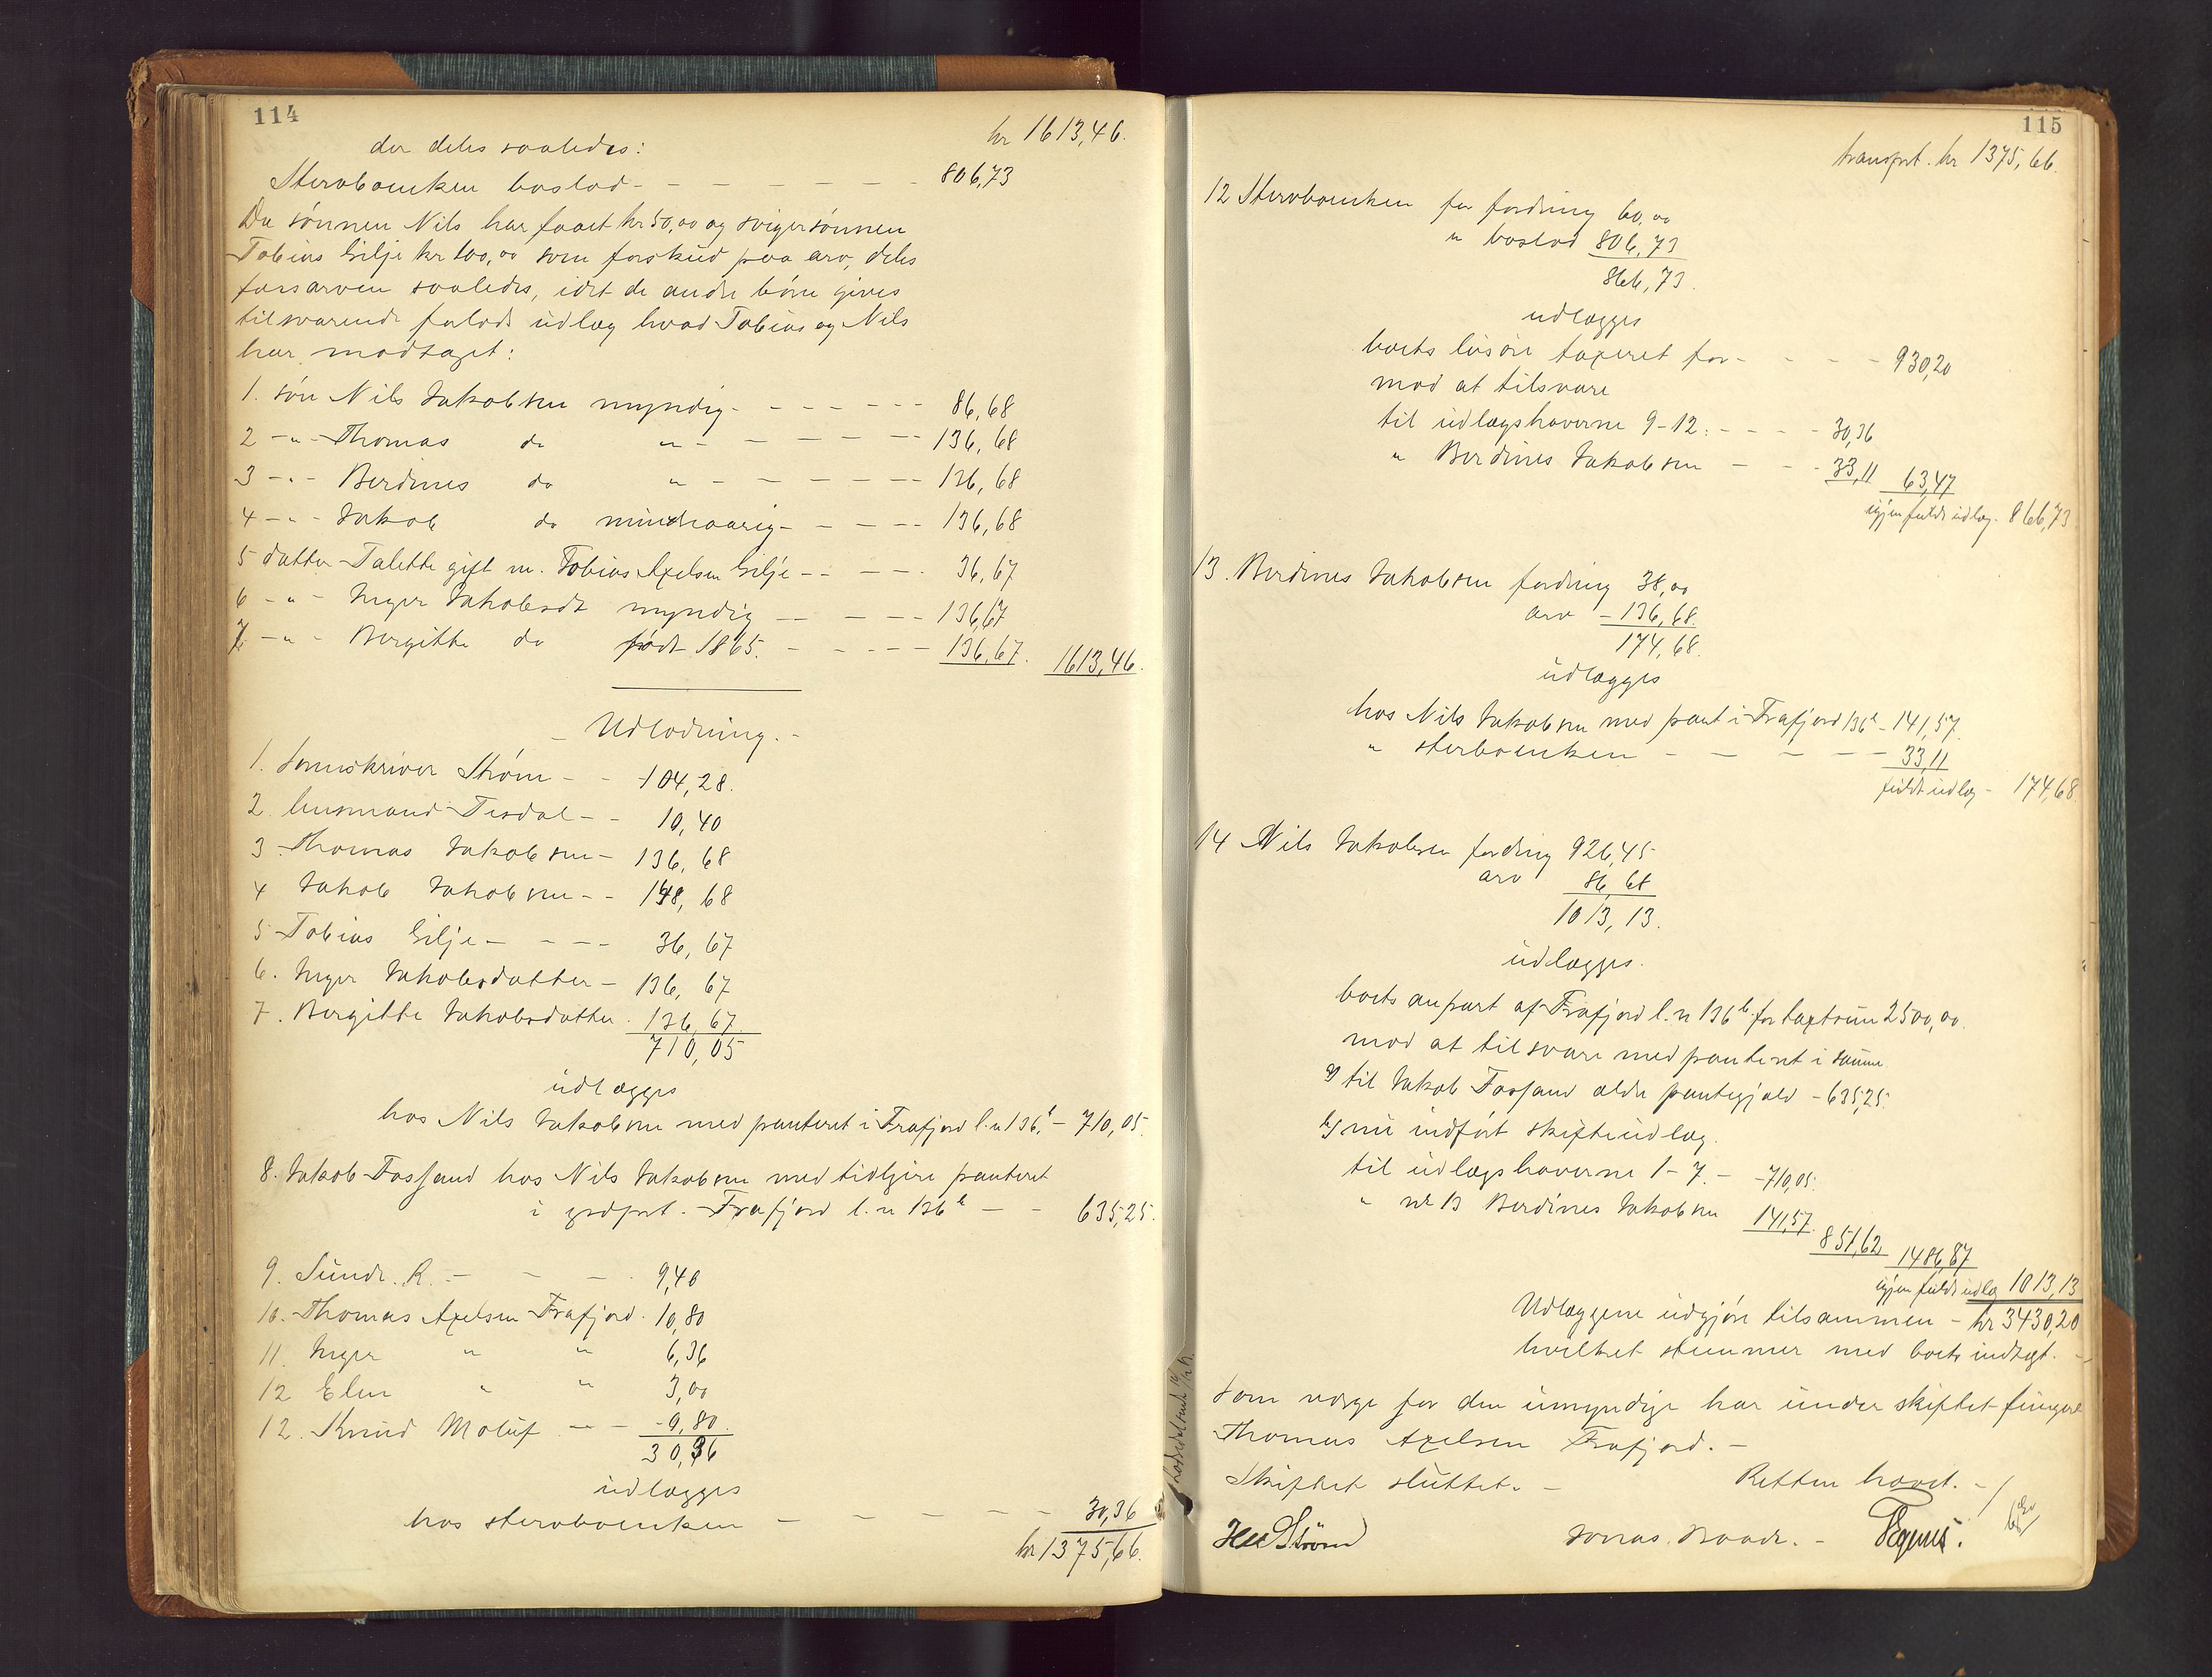 114
kr 1613,46.
der deles saaledes:
Stervboenken boslod - - - - - - - 806,73
Da sønnen Nils har faaet kr 50,00 og svigersønnen
Tobias Gilje kr 100,00 som forskud paa arv, deles
farsarven saaledes, idet de andre børn gives
tilsvarende forlods udlæg hvad Tobias og Nils
har modtaget:
1. søn Nils Jakobsen myndig. - - - - - - 86,68
2 -"- Thomas do " - - - - - - 136,68
3 -"- Berdines do " - - - - - - 136,68
4 -"- Jakob do mindreaarig - - - - 136,68
5 datter Talette gift m. Tobias Axelsen Gilje - - - - 36,67
6 -"- Inger Jakobsdt myndig - - - - - 136,67
7 -"- Bergitte do født 1865. - - - - - 136,67. 1613,46.
- Udlodning. -
1. Sorenskriver Strøm - - - 104,28.
2. husmand Tisdal - - 10,40
3 Thomas Jakobsen - 136,68
4 Jakob Jakobsen - - 148,68
5 Tobias Gilje - - - - 36,67
6. Inger Jakobsdatter - 136,67
7. Bergitte Jakobsdatter 136,67
710,05
udlægges
hos Nils Jakobsen med panteret i Frafjord l.n 136b - 710,05.
8. Jakob Fossand hos Nils Jakobsen med tidligere panteret
i grdprt. Frafjord l.n 136b - - 635,25.
9. Sundr. R. - - - 9,40
10. Thomas Axelsen Frafjord. 10,80
11. Inger " " 6,36
12 Elen " " 3,00
12. Knud Moluf - - 0,80
30,36
udlægges
hos stervboenken - - - - - 30,36
kr 1375,66.
115
transprt. kr 1375,66.
12 Stervboenken for fordring 60,00
" boslod 806,73
866,73.
udlægges
boets løsøre taxeret for - - - - 930,20
mod at tilsvare
til udlægshaverne 9-12: - - - - 30,36
" Berdines Jakobsen - - - 33,11 63,47
igjen fuldt udlæg - 866,73
13. Berdines Jakobsen fordring 38,00
arv - 136,68.
174,68.
udlægges
hos Nils Jakobsen med pant i Frafjord 136b - 141,57.
" sterboenken - - - - - 33,11
fuldt udlæg - 174,68.
14 Nils Jakobsen fordring 926,45
arv 86,68
1013,13.
udlægges.
boets anpart af Frafjord l.n 136b for taxtsum 2500,00.
mod at tilsvare med panteret i samme
a) til Jakob Fossand ældre pantegjæld - 635,25.
b) nu indført skifteudlæg.
til udlægshaverne 1-7. - - 710,05.
" nr 13 Berdines Jakobsen 141,57.
851,62 1486,87
igjen fuldt udlæg 1013,13
Udlæggene udgjøre tilsammen - kr 3430,20
hvilket stemmer med boets indtægt. -
Som verge for den umyndige har under skiftet fungeret
Thomas Axelsen Frafjord. -
Skiftet sluttet. - Retten hævet. -
Strøm Jonas Raade. -